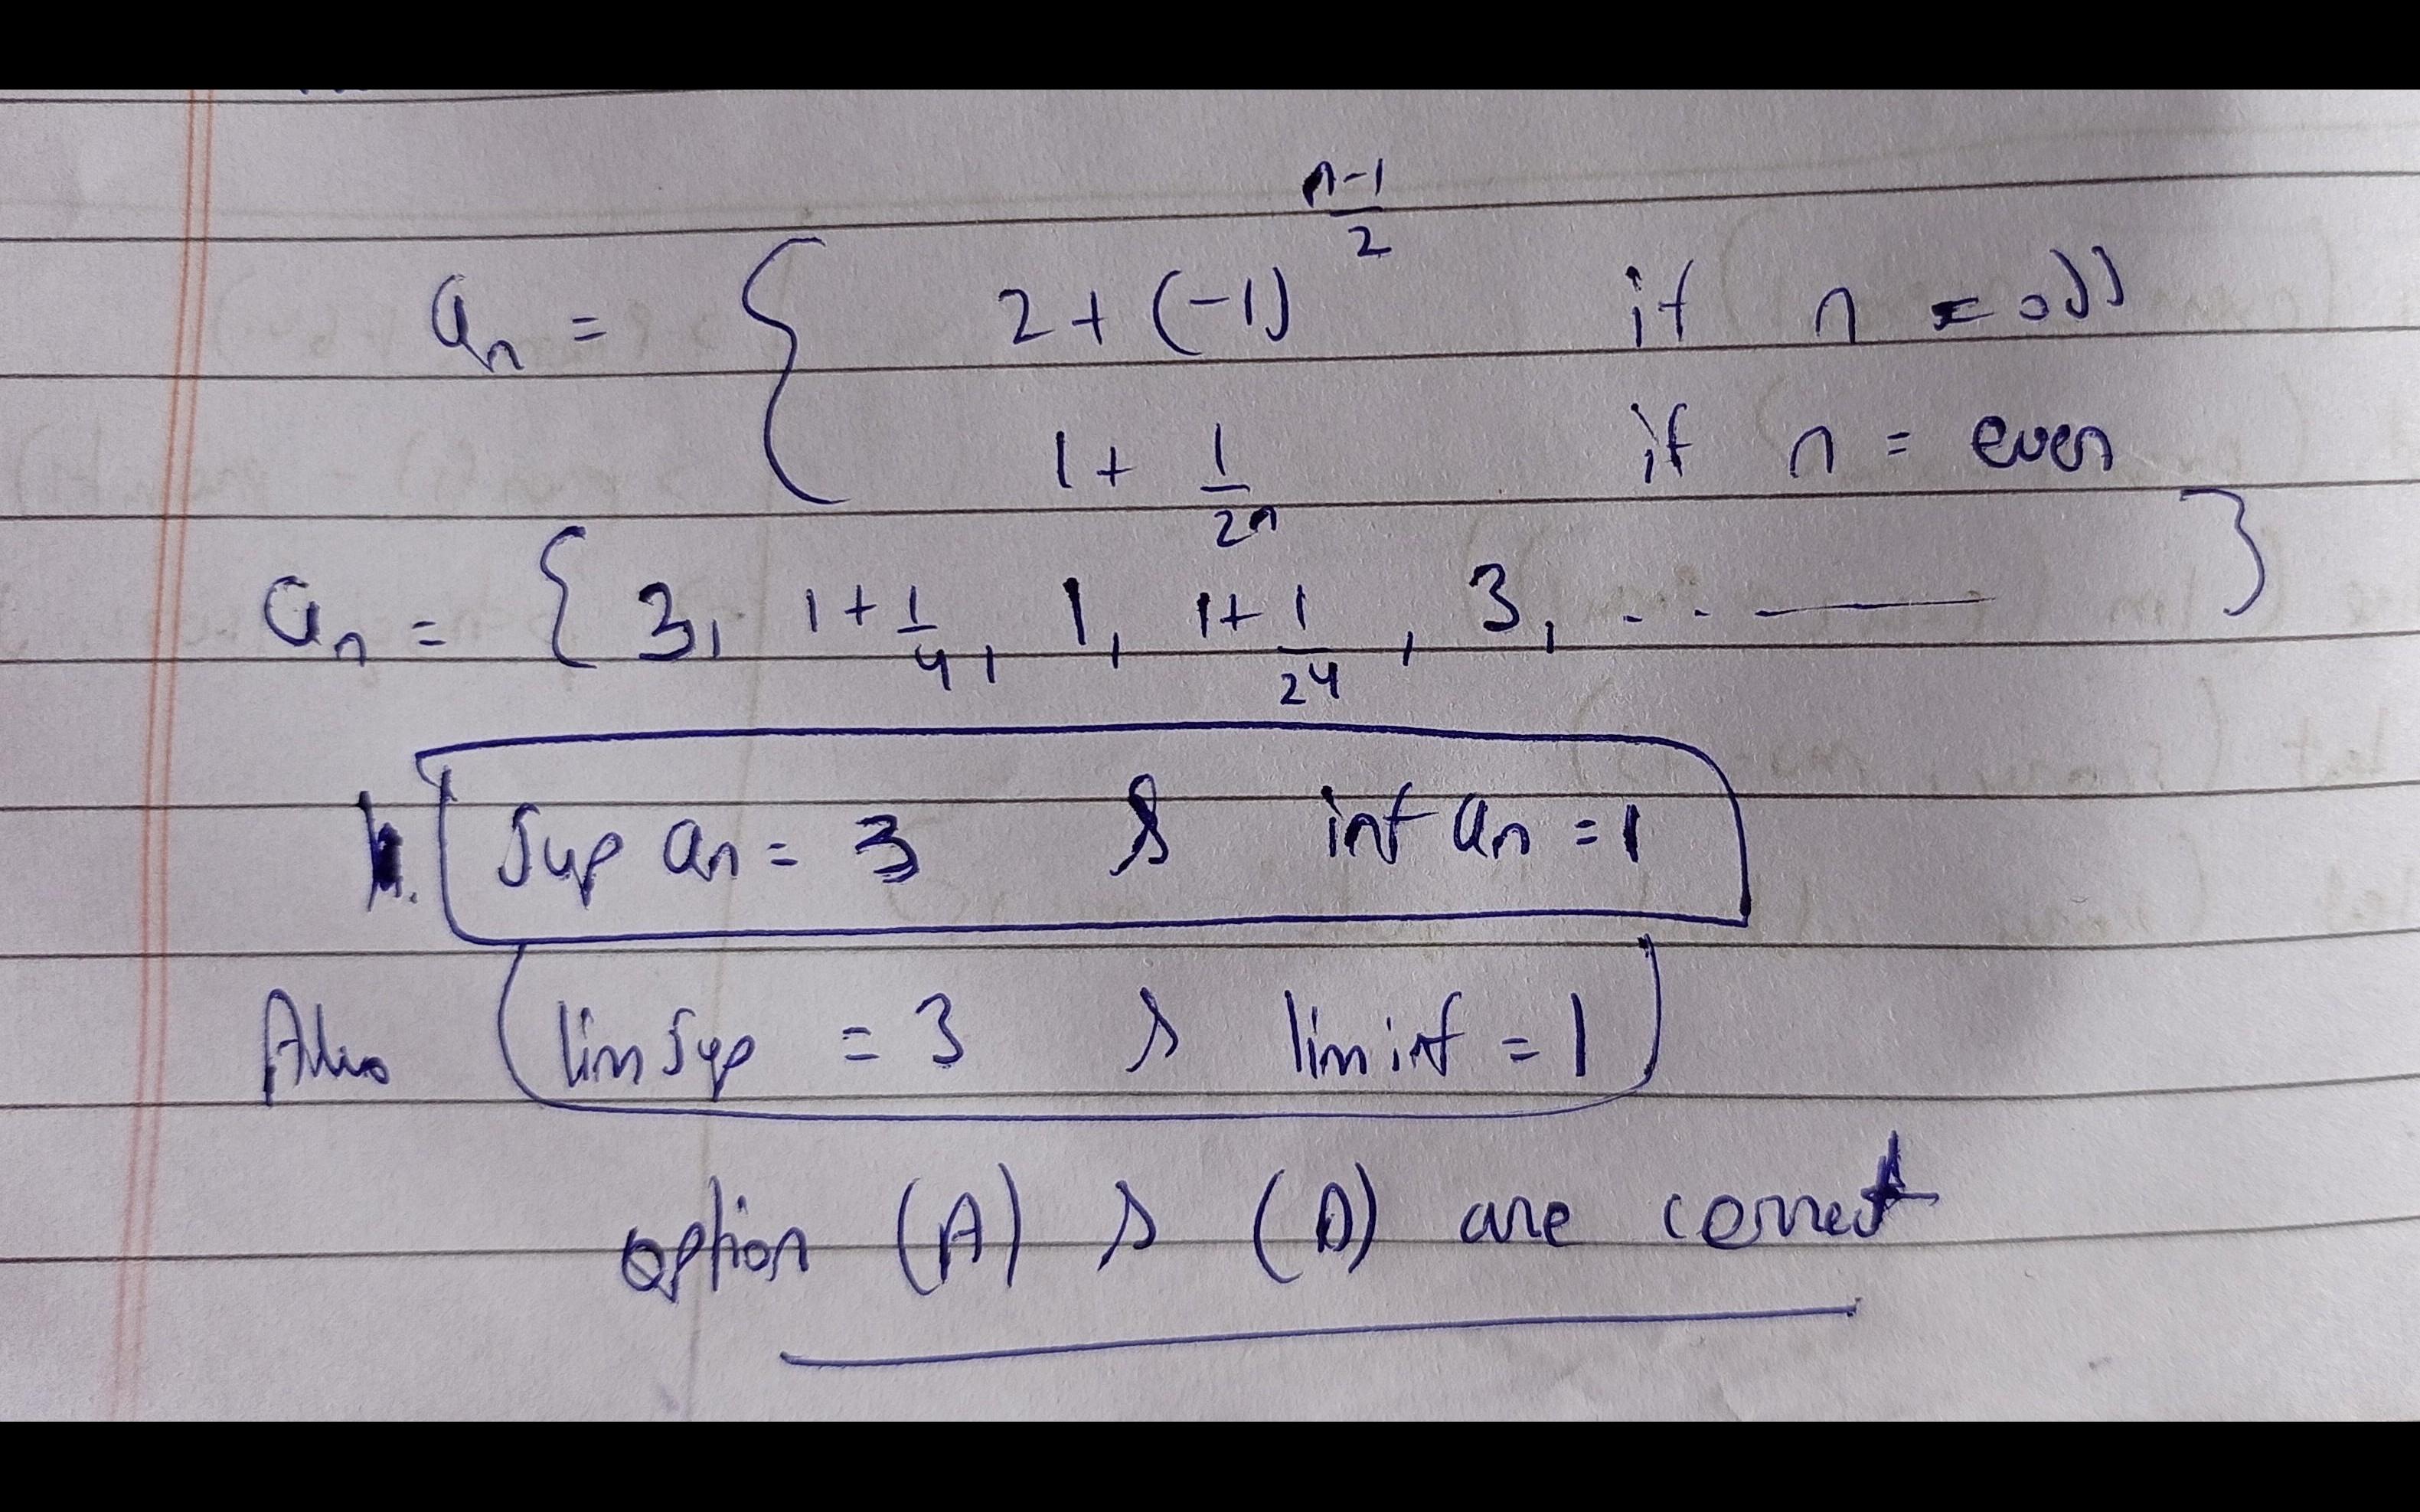 aₙ = { 2 + (-1)^((n-1)/2) if n = odd
1 + 1/2ⁿ if n = even
aₙ = { 3, 1 + 1/4, 1, 1 + 1/2⁴, 3, . . . — }
Sup aₙ = 3 & inf aₙ = 1
Also lim sup = 3 & lim inf = 1
option (A) & (D) are correct